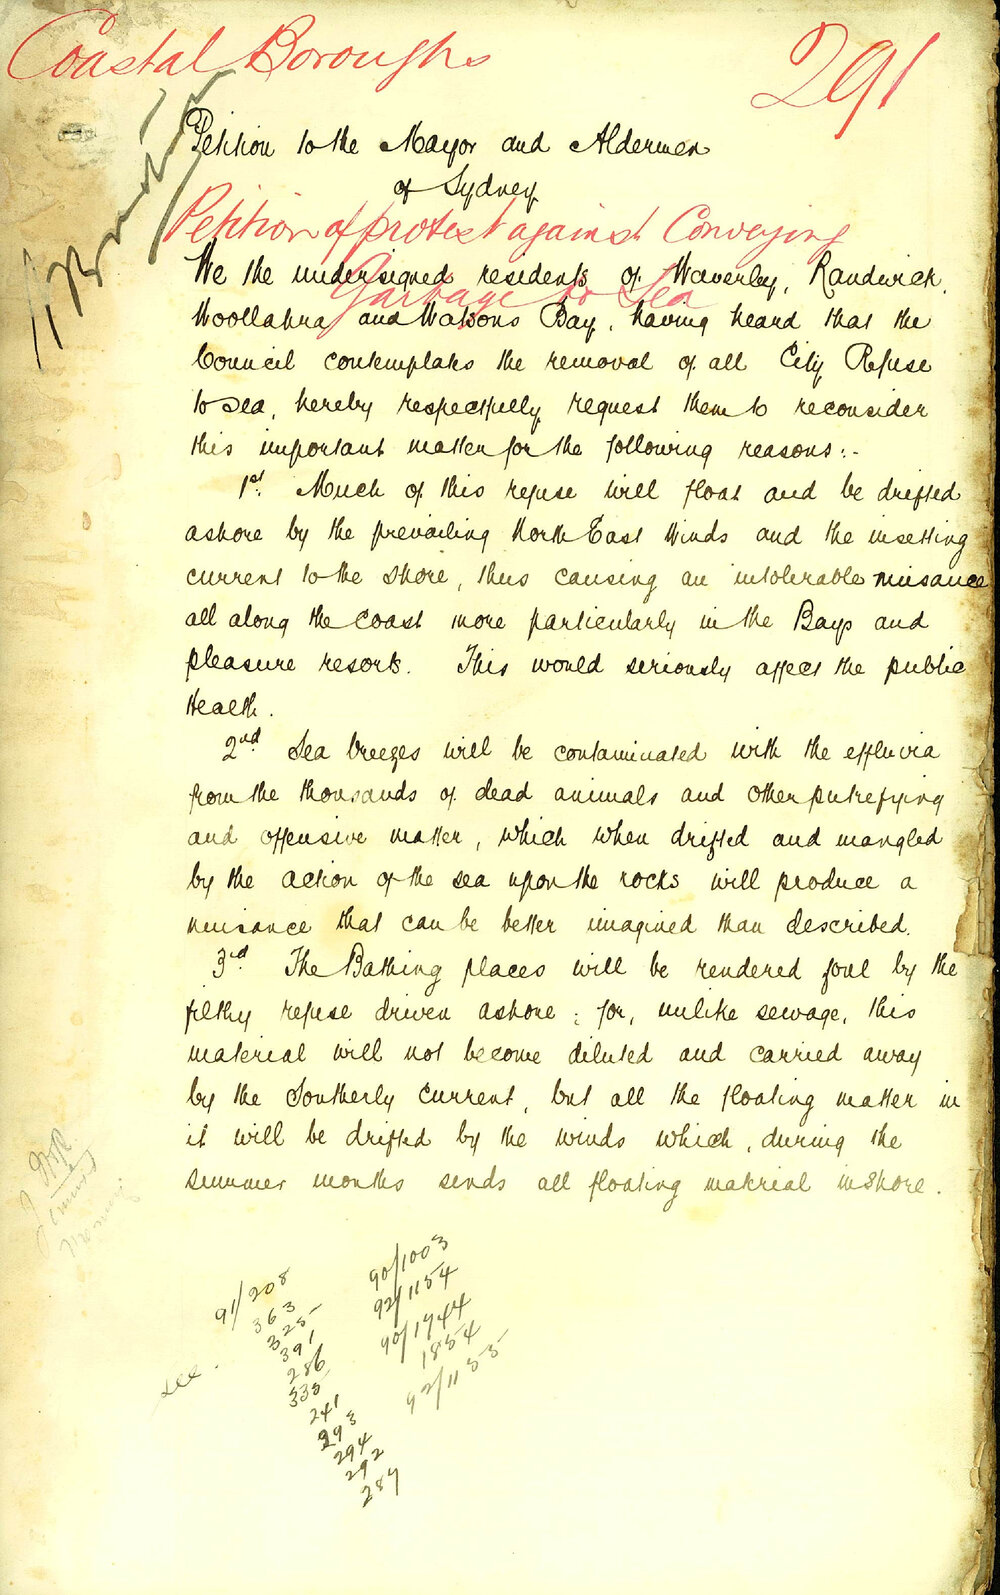 Coastal Boroughs
291
Petition to the Mayor and Aldermen
of Sydney
Petition of protest against Conveying
Garbage to Sea
We the undersigned residents of Waverley, Randwick,
Woollahra and Watsons Bay, having heard that the
Council contemplates the removal of all City Refuse
to sea, hereby respectfully request them to reconsider
this important matter for the following reasons:-
1st. Much of this refuse will float and be drifted
ashore by the prevailing North East Winds and the insetting
current to the shore, thus causing an intolerable nuisance
all along the coast more particularly in the Bays and
pleasure resorts. This would seriously affect the public
Health.
2nd Sea breezes will be contaminated with the effluvia
from the thousands of dead animals and other putrefying
and offensive matter, which when drifted and mangled
by the action of the sea upon the rocks will produce a
nuisance that can be better imagined than described.
3rd. The Bathing places will be rendered foul by the
filthy refuse driven ashore; for, unlike sewage, this
material will not become diluted and carried away
by the Southerly current, but all the floating matter in
it will be drifted by the winds which, during the
summer months sends all floating material inshore.
see
91/208
363
325
391
286
335
241
293
294
292
289
90/1003
92/1154
90/1944
1854
92/1155